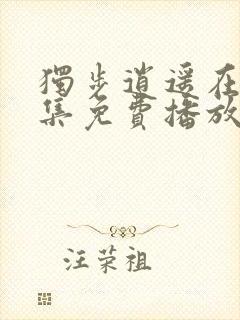 獨步逍遙在
集免費播放
汪荣祖